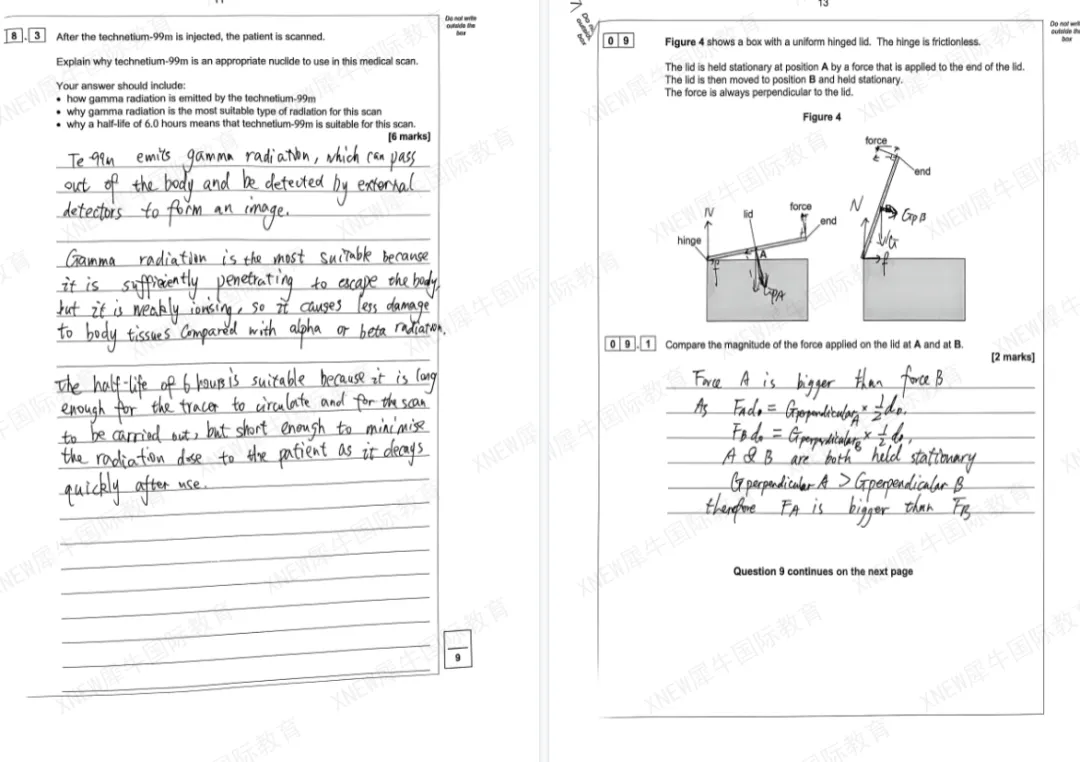 11
Do not write
outside the
box
8 . 3 After the technetium-99m is injected, the patient is scanned.
Explain why technetium-99m is an appropriate nuclide to use in this medical scan.
Your answer should include:
• how gamma radiation is emitted by the technetium-99m
• why gamma radiation is the most suitable type of radiation for this scan
• why a half-life of 6.0 hours means that technetium-99m is suitable for this scan.
[6 marks]
Te 99m emits gamma radiation, which can pass
out of the body and be detected by external
detectors to form an image.
Gamma radiation is the most suitable because
it is sufficiently penetrating to escape the body,
but it is weakly ionising, so it causes less damage
to body tissues compared with alpha or beta radiation.
The half-life of 6 hours is suitable because it is long
enough for the tracer to circulate and for the scan
to be carried out, but short enough to minimise
the radiation dose to the patient as it decays
quickly after use.
9
13
Do not write
outside the
box
0 9 Figure 4 shows a box with a uniform hinged lid. The hinge is frictionless.
The lid is held stationary at position A by a force that is applied to the end of the lid.
The lid is then moved to position B and held stationary.
The force is always perpendicular to the lid.
Figure 4
force
end
N
lid
force
end
hinge
A
f
GpA
N
GpB
G
f
0 9 . 1 Compare the magnitude of the force applied on the lid at A and at B.
[2 marks]
Force A is bigger than force B
As FAd0 = Gperpendicular A × 1/2 d0.
FBd0 = Gperpendicular B × 1/2 d0.
A & B are both held stationary
Gperpendicular A > Gperpendicular B
therefore FA is bigger than FB
Question 9 continues on the next page
XNEW犀牛国际教育